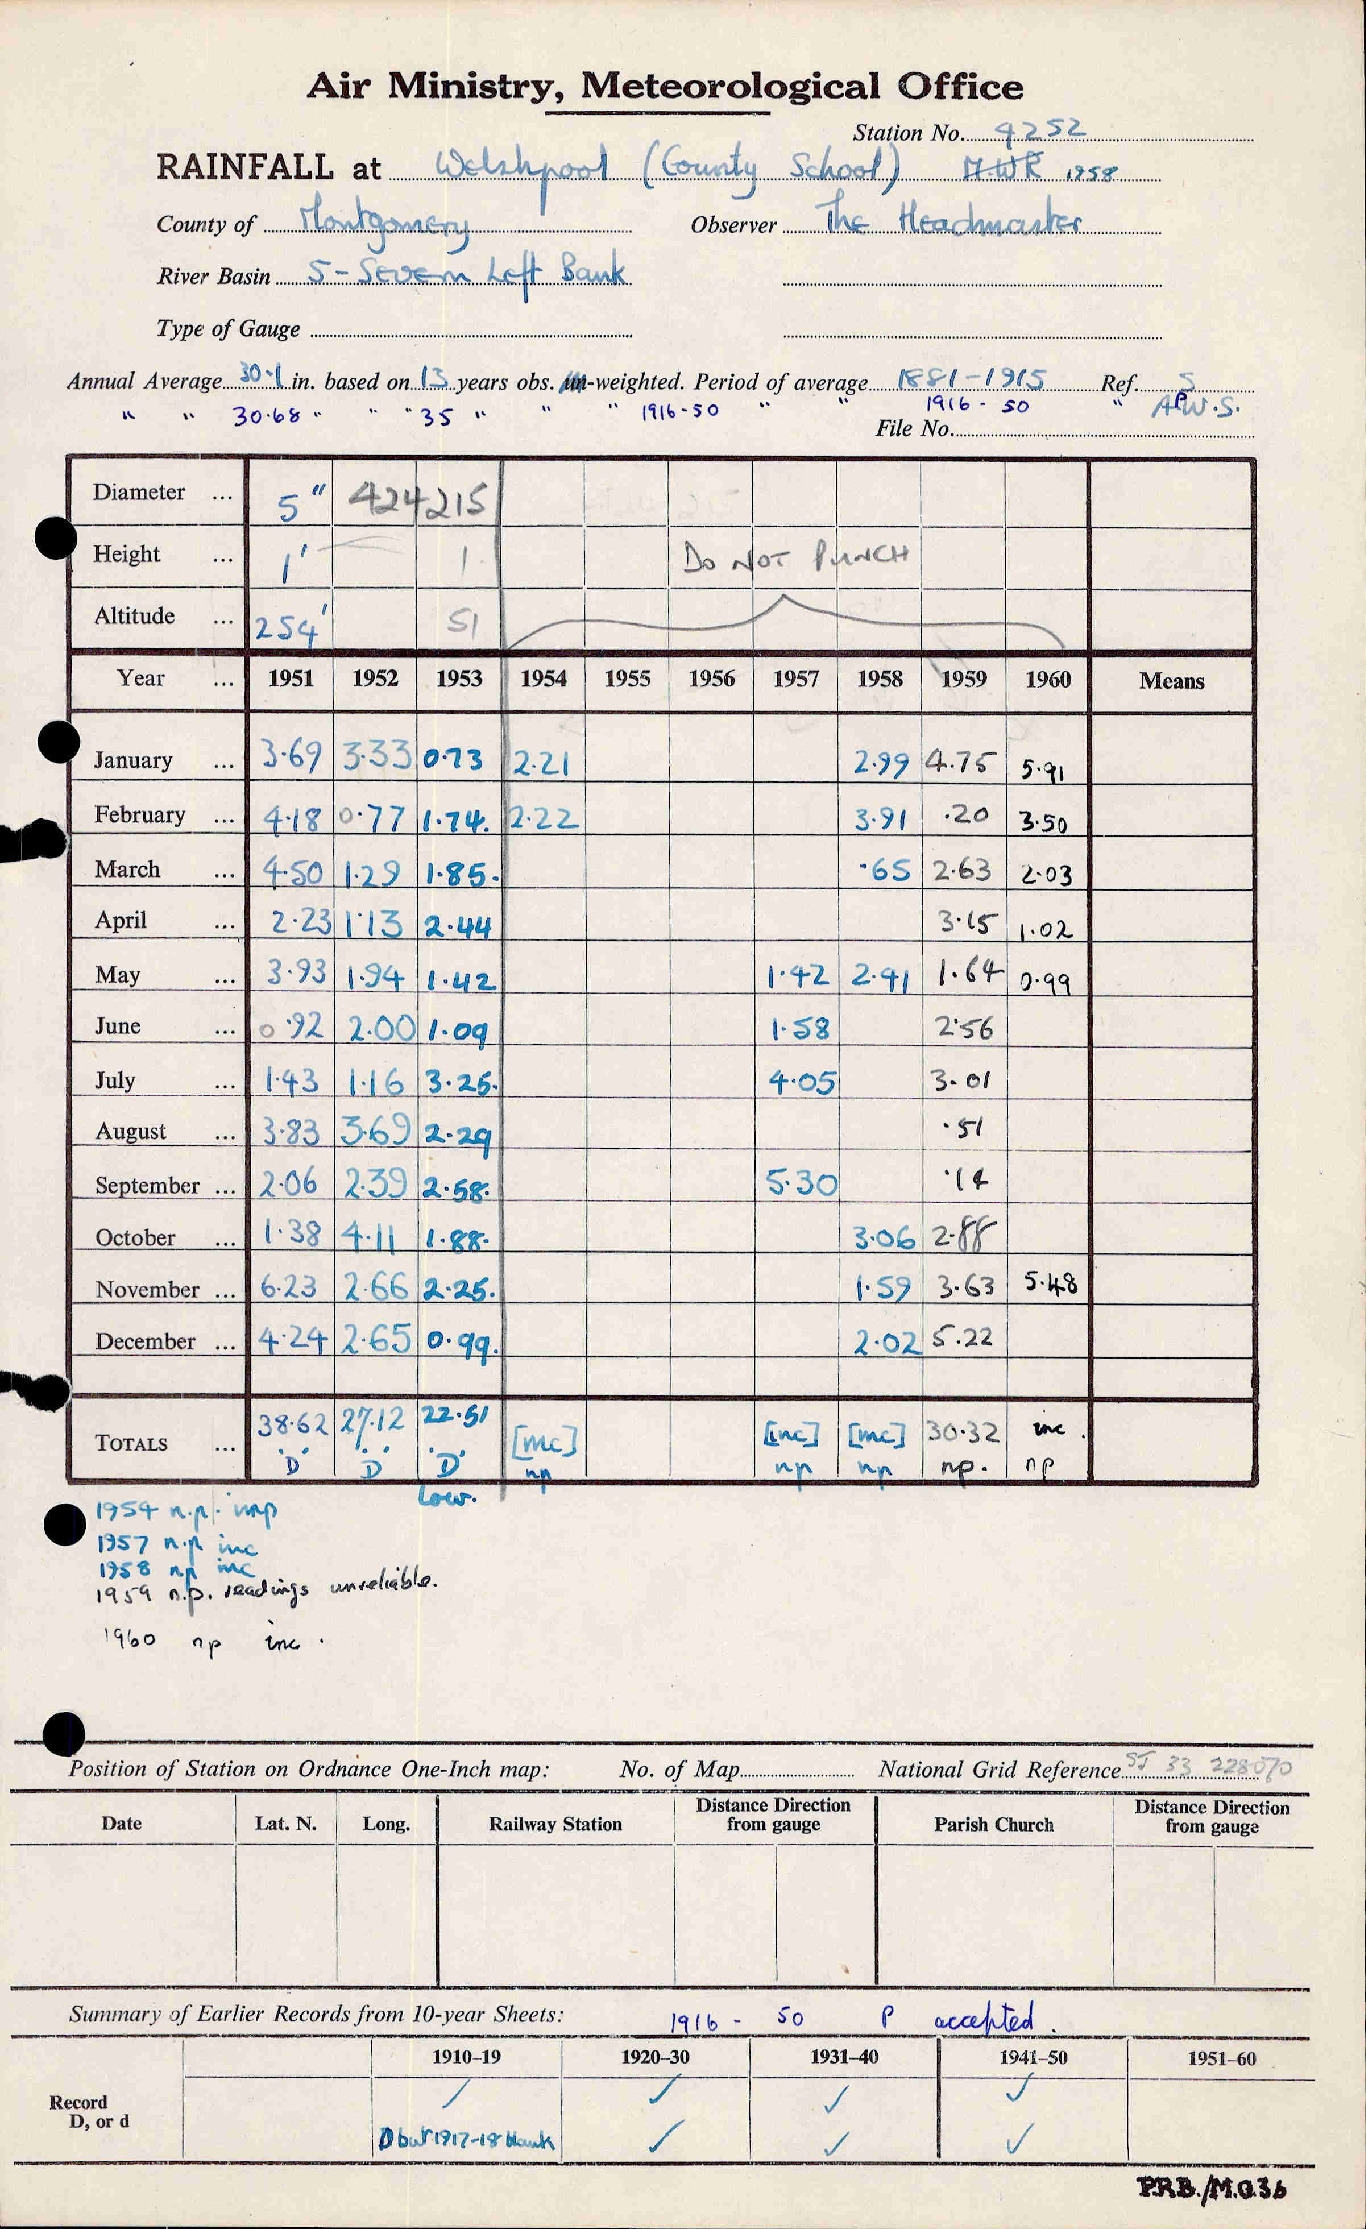 Air Ministry, Meteorological Office
Station No. 4252
RAINFALL at Welshpool (County School) AWR 1958
County of Montgomery Observer The Headmaster
River Basin 5 - Severn Left Bank
Type of Gauge
Annual Average 30.1 in. based on 13 years obs. un-weighted. Period of average 1881-1915 Ref. S
" " 30.68 " " " 35 " " " 1916-50 " " 1916 - 50 " A.W.S.
File No.
Diameter ... 5" 424215
Height ... 1' 1 Do NOT PUNCH
Altitude ... 254' 51
Year ... 1951 1952 1953 1954 1955 1956 1957 1958 1959 1960 Means
January ... 3.69 3.33 0.73 2.21 2.99 4.75 5.91
February ... 4.18 0.77 1.74. 2.22 3.91 .20 3.50
March ... 4.50 1.29 1.85. .65 2.63 2.03
April ... 2.23 1.13 2.44 3.15 1.02
May ... 3.93 1.94 1.42 1.42 2.91 1.64 0.99
June ... 0.92 2.00 1.09 1.58 2.56
July ... 1.43 1.16 3.25. 4.05 3.01
August ... 3.83 3.69 2.29 .51
September ... 2.06 2.39 2.58. 5.30 .14
October ... 1.38 4.11 1.88. 3.06 2.88
November ... 6.23 2.66 2.25. 1.59 3.63 5.48
December ... 4.24 2.65 0.99. 2.02 5.22
TOTALS ... 38.62 27.12 22.51 [inc] [inc] [inc] 30.32 inc.
'D' 'D' 'D' np np np np. np
Low.
1954 n.p. imp
1957 n.p inc
1958 np inc
1959 n.p. readings unreliable.
1960 np inc.
Position of Station on Ordnance One-Inch map: No. of Map National Grid Reference SJ 33 228070
Date Lat. N. Long. Railway Station Distance Direction from gauge Parish Church Distance Direction from gauge
Summary of Earlier Records from 10-year Sheets: 1916 - 50 P accepted.
1910-19 1920-30 1931-40 1941-50 1951-60
Record ✓ ✓ ✓ ✓
D, or d D but 1917-18 blank ✓ ✓ ✓
P.R.B./M.O.36